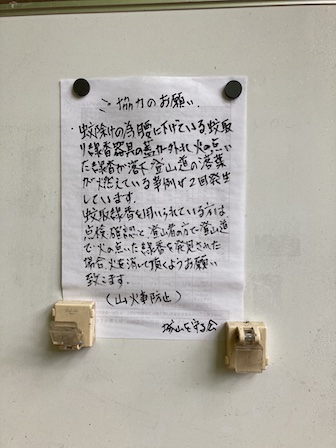 ご協力のお願い.
蚊除けの為腰に下げている蚊取
り線香器具の蓋が外れ火の点い
た線香が落下登山道の落葉
が燃えている事例が2回発生
しています.
蚊取線香を用いられている方は
点検、確認と登山者の方で登山道
で火の点いた線香を発見された
場合火を消して頂くようお願い
致こます.
（山火事防止）
城山を守る会